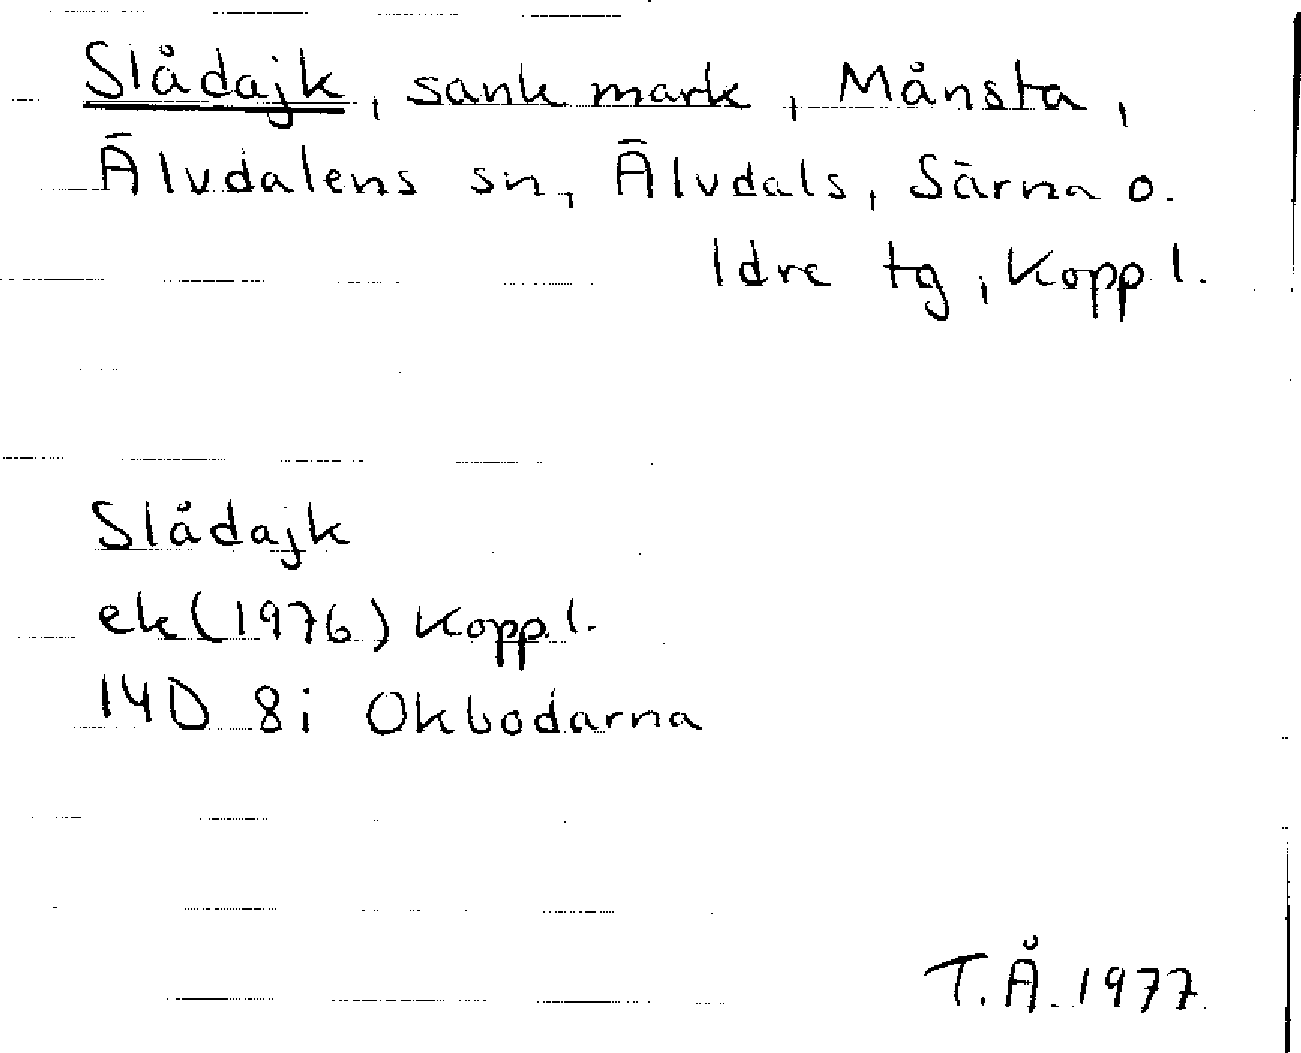 Slådajk, sank mark, Månsta,
Älvdalens sn, Älvdals, Särna o.
Idre tg, Kopp l.
Slådajk
ek (1976) Kopp l.
14D 8i Okbodarna
T.Å. 1977